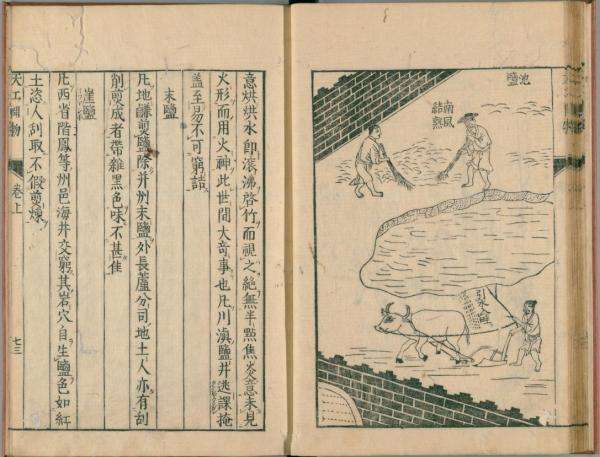 池鹽
南風
結熟
引水
意烘烘水即滾沸啓竹而視之絕無半點焦炎意未見
火形而用火神此世間大奇事也凡川滇鹽井逃課掩
蓋至易不可窮詰
末鹽
凡地鹻煎鹽除并州末鹽外長蘆分司地土人亦有刮
削煎成者帶雜黑色味不甚佳
崖鹽
凡西省階鳳等州邑海井交窮其岩穴自生鹽色如紅
土恣人刮取不假煎煉
天工開物 卷上 七三